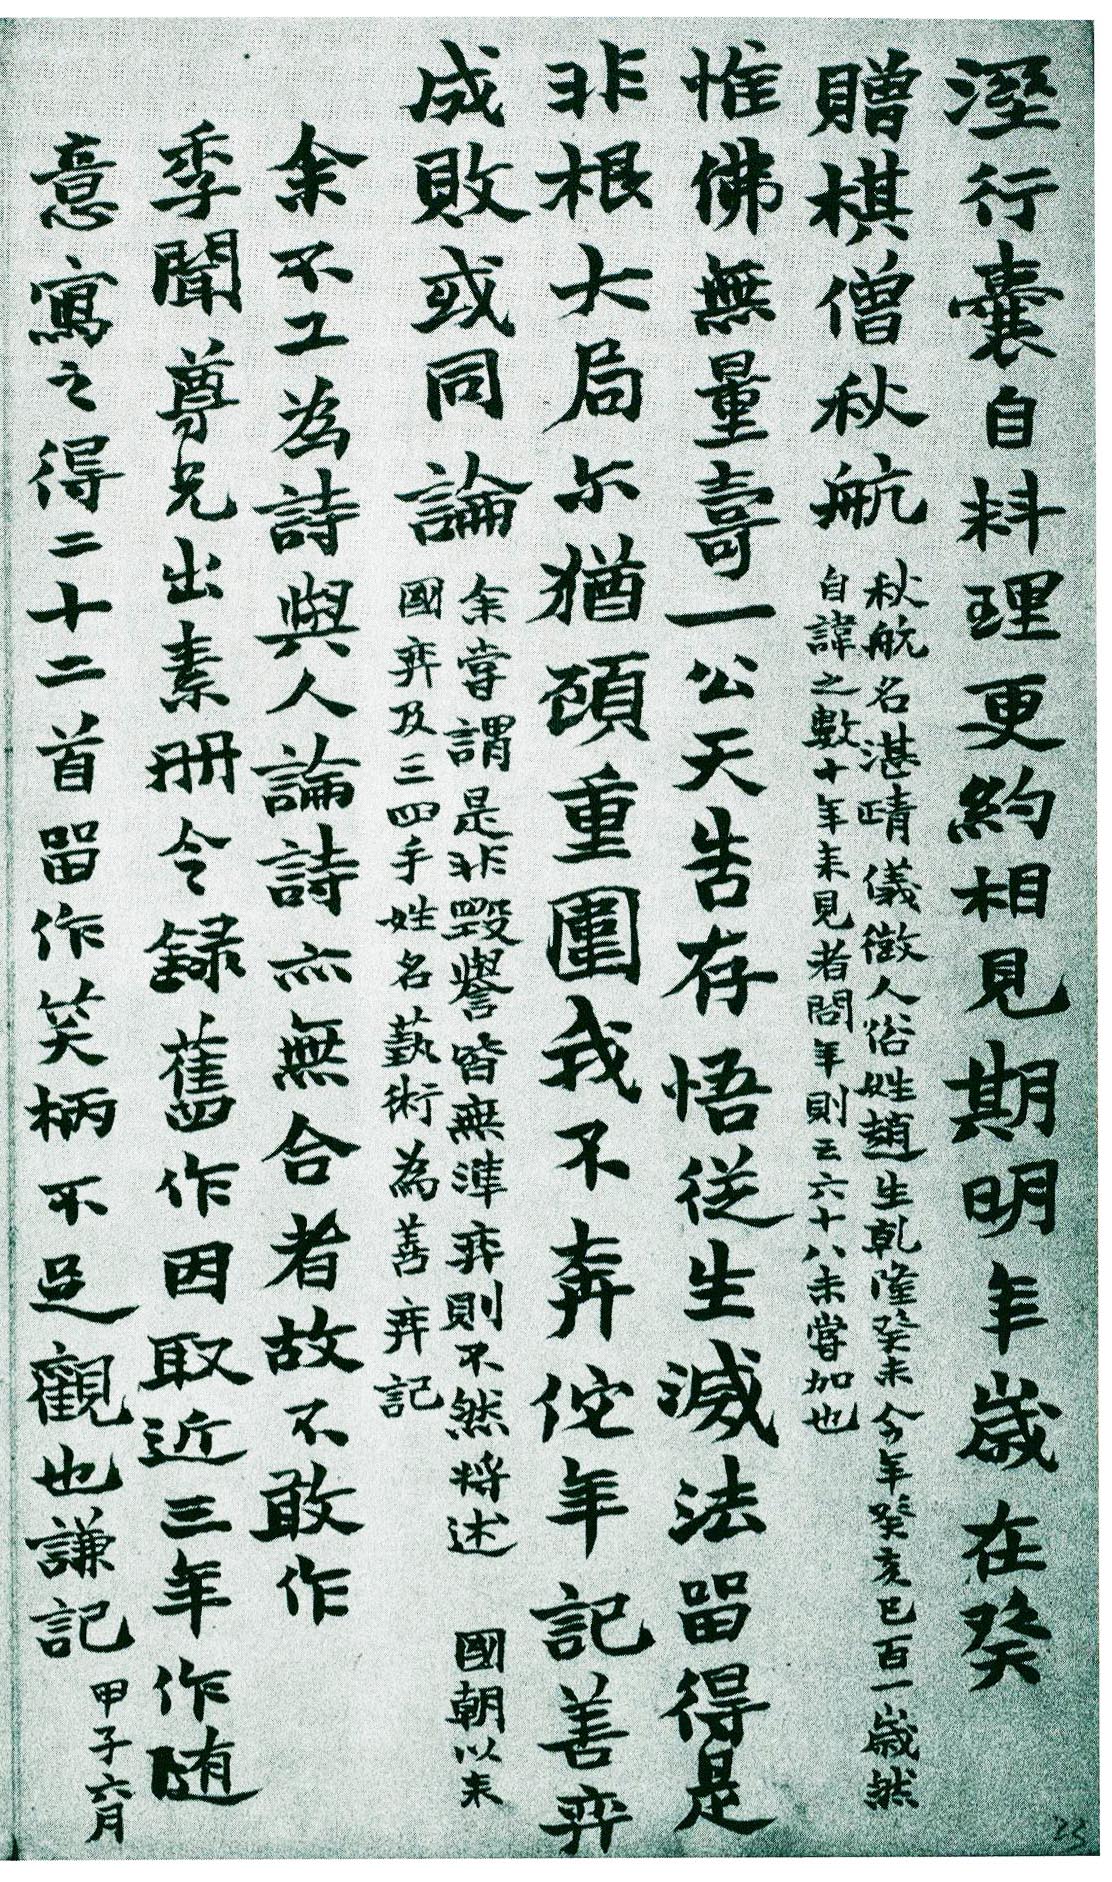 溼行囊自料理更約相見期明年歲在癸
贈棋僧秋航
秋航名湛晴儀徵人俗姓趙生乾隆癸未今年癸亥巳百一歲然
自諱之數十年來見者問年則云六十八未嘗加也
惟佛無量壽一公天告存悟從生滅法留得是
非根大局尒猶頑重圍我不奔佗年記善弈
成敗或同論
余嘗謂是非毀譽皆無準弈則不然将述 國朝以来
國弈及三四手姓名蓺術為善弈記
余不工為詩與人論詩亦無合者故不敢作
季聞尊兄出素冊令録舊作因取近三年作随
意寫之得二十二首留作笑柄不足觀也謙記
甲子六月
23